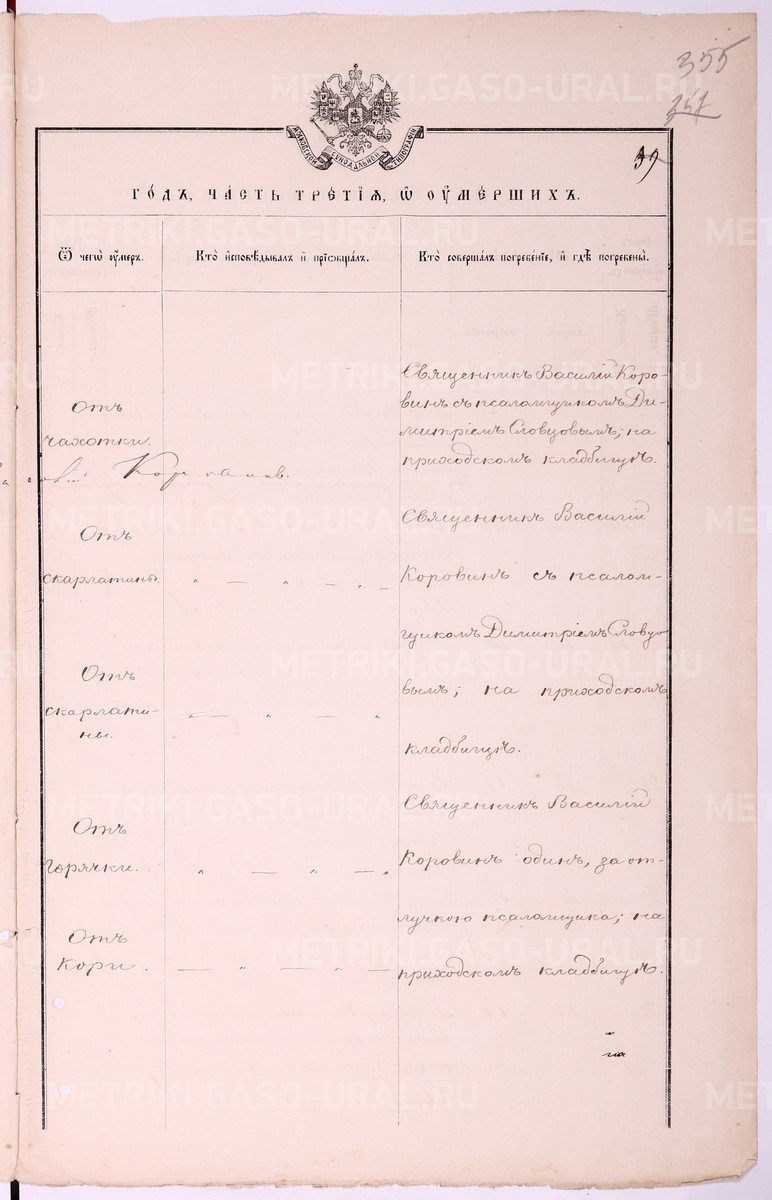 355
357
39
МОСКОВСКОЙ СѴНОДАЛЬНОЙ ТИПОГРАФІИ
ГО́ДЪ, ЧА́СТЬ ТРЕ́ТІѦ, Ѡ҆ ОУ҆МЕ́РШИХЪ.
Ѿ чегѡ̀ оу҆́меръ.
Кто̀ и҆сповѣ́дывалъ и҆ прїѡбща́лъ.
Кто̀ соверша́лъ погребе́нїе, и҆ гдѣ̀ погребены̀.
Отъ
чахотки.
Священникъ Василій Коро-
винъ съ псаломщикомъ Ди-
митріемъ Словцовымъ; на
приходскомъ кладбищѣ.
Отъ
скарлатины
" — " — " —
Священникъ Василій
Коровинъ съ псалом-
щикомъ Димитріемъ Словцо-
вымъ; на приходскомъ
кладбищѣ.
Отъ
скарлати-
ны.
" — " — "
Отъ
горячки.
" — " — "
Священникъ Василій
Коровинъ одинъ, за от-
лучкою псаломщика; на
приходскомъ кладбищѣ.
Отъ
кори.
— " — " —
METRIKI.GASO-URAL.RU